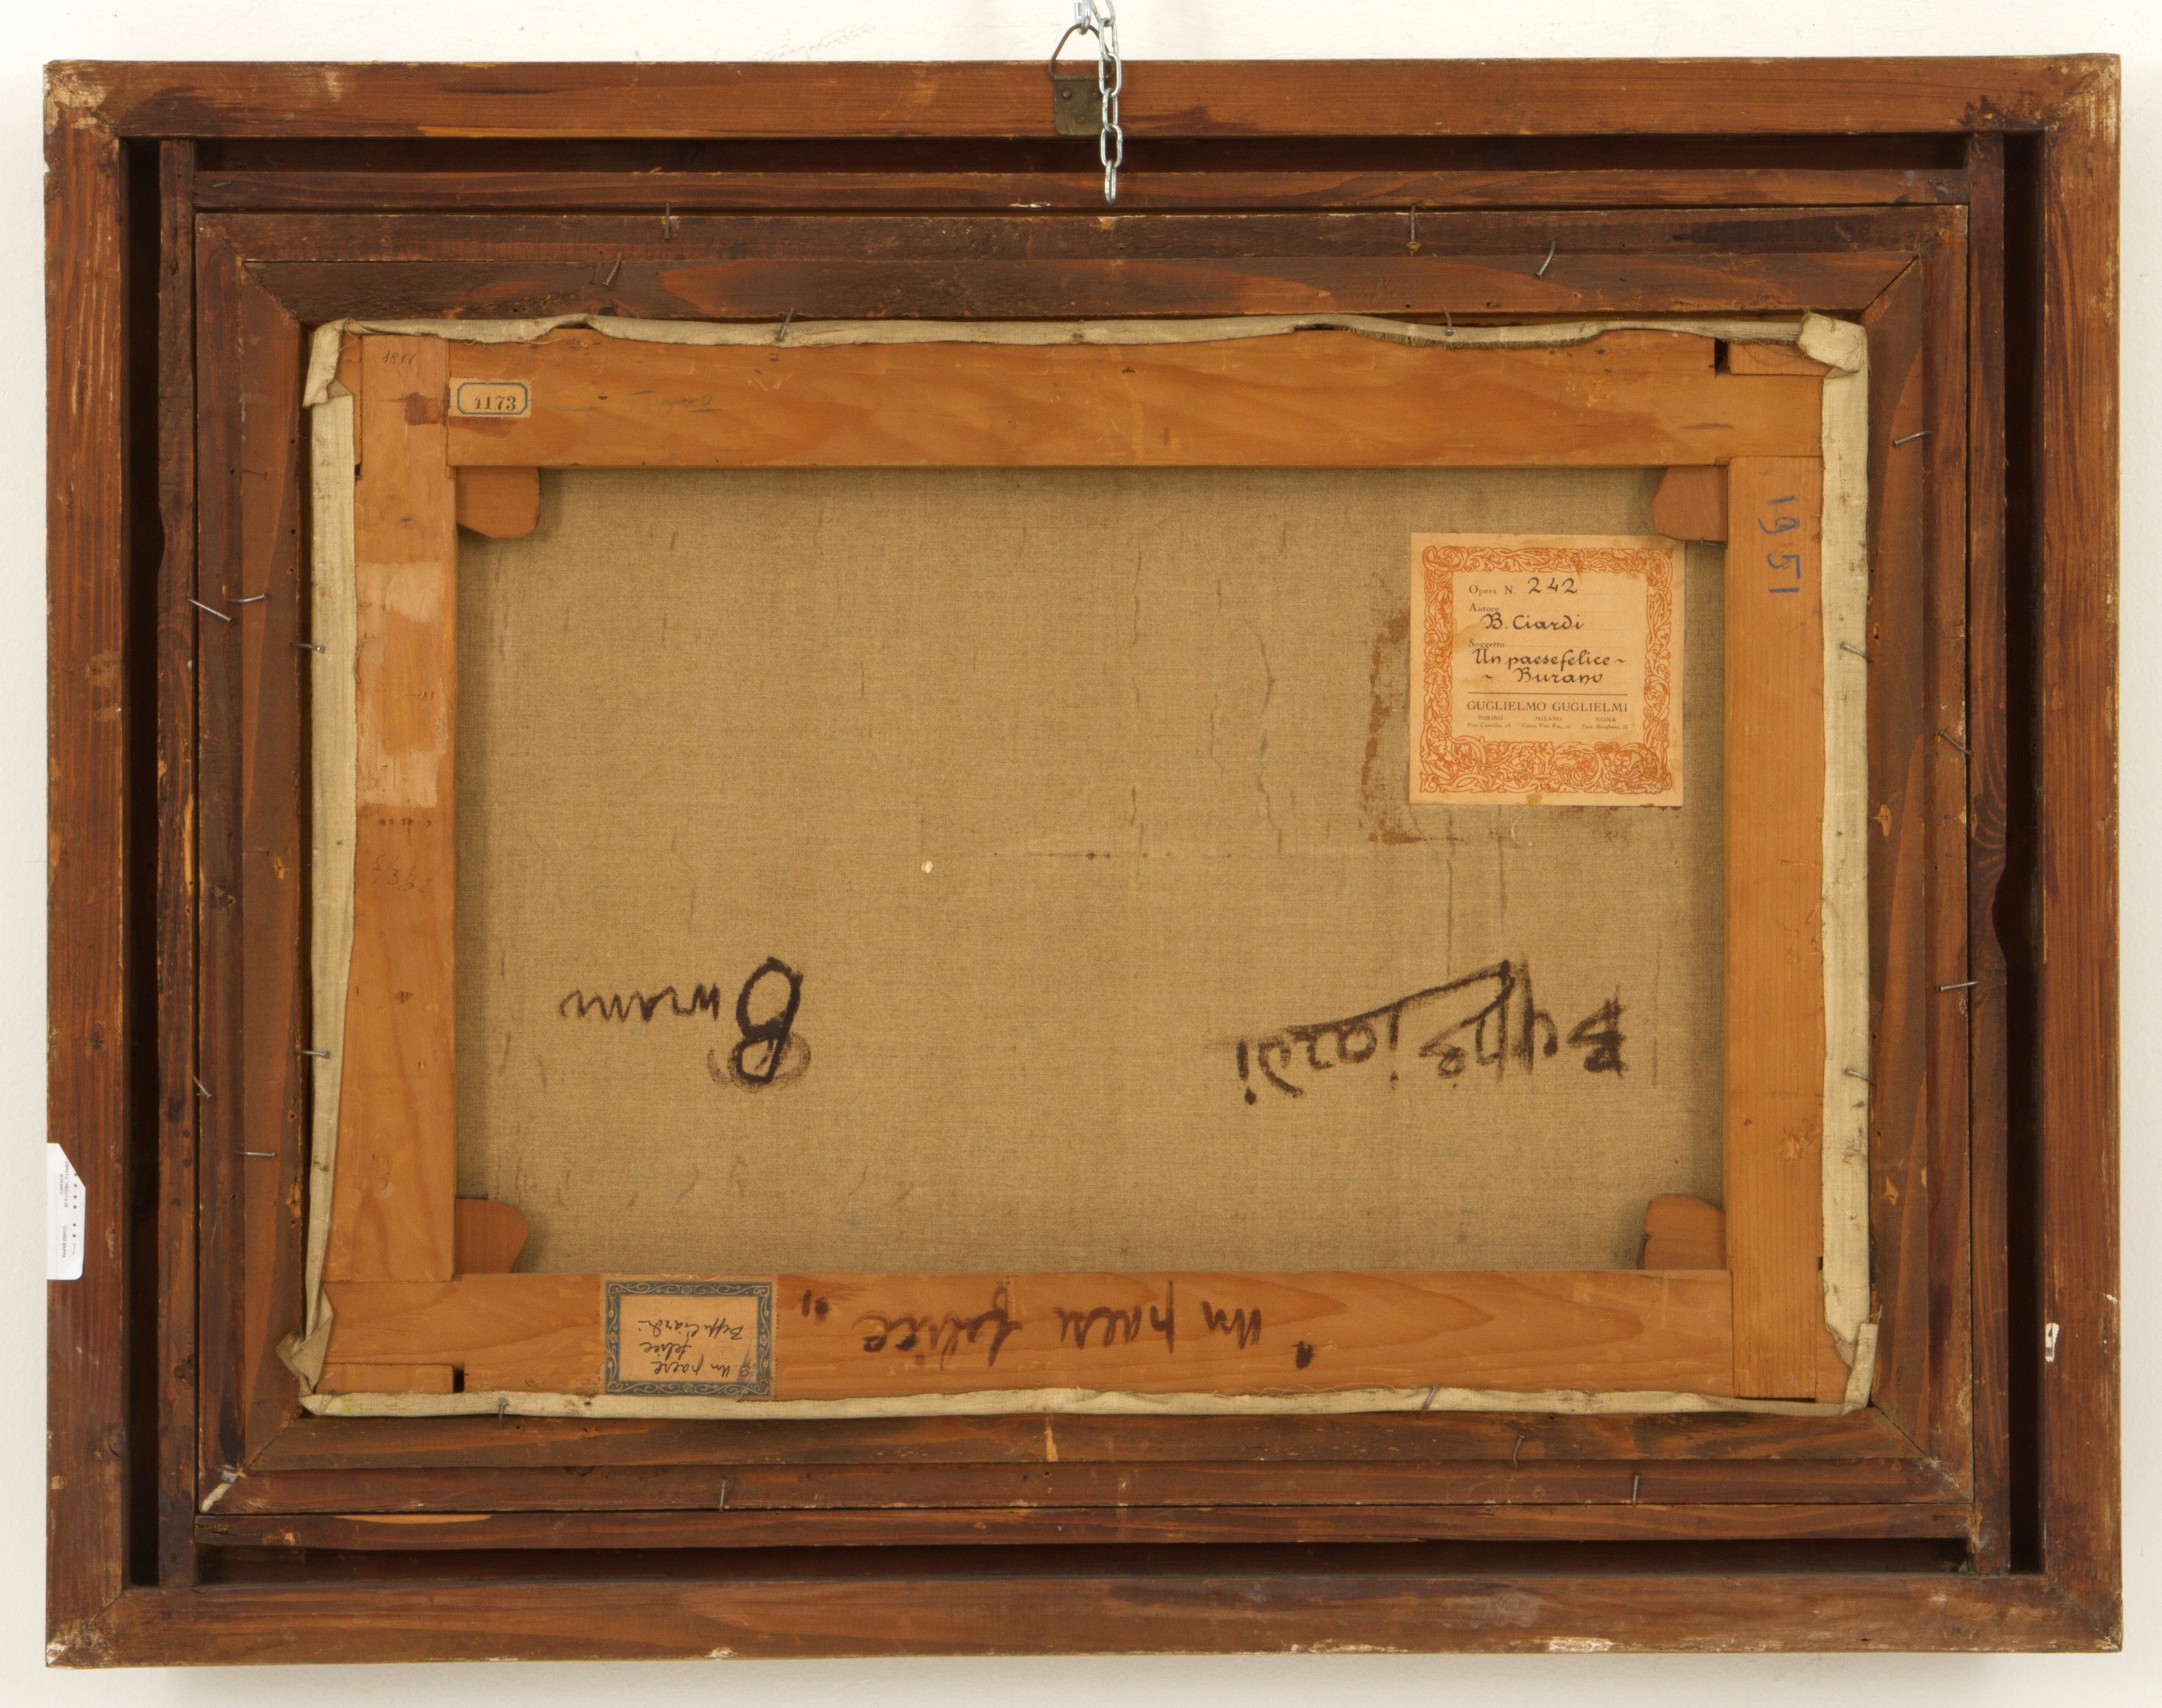 4173
1951
Opera N. 242
Autore
B. Ciardi
Soggetto
Un paese felice ~
~ Burano
GUGLIELMO GUGLIELMI
TORINO MILANO ROMA
Burano
Beppe Ciardi
" Un paese felice "
Un paese
felice
Beppe Ciardi